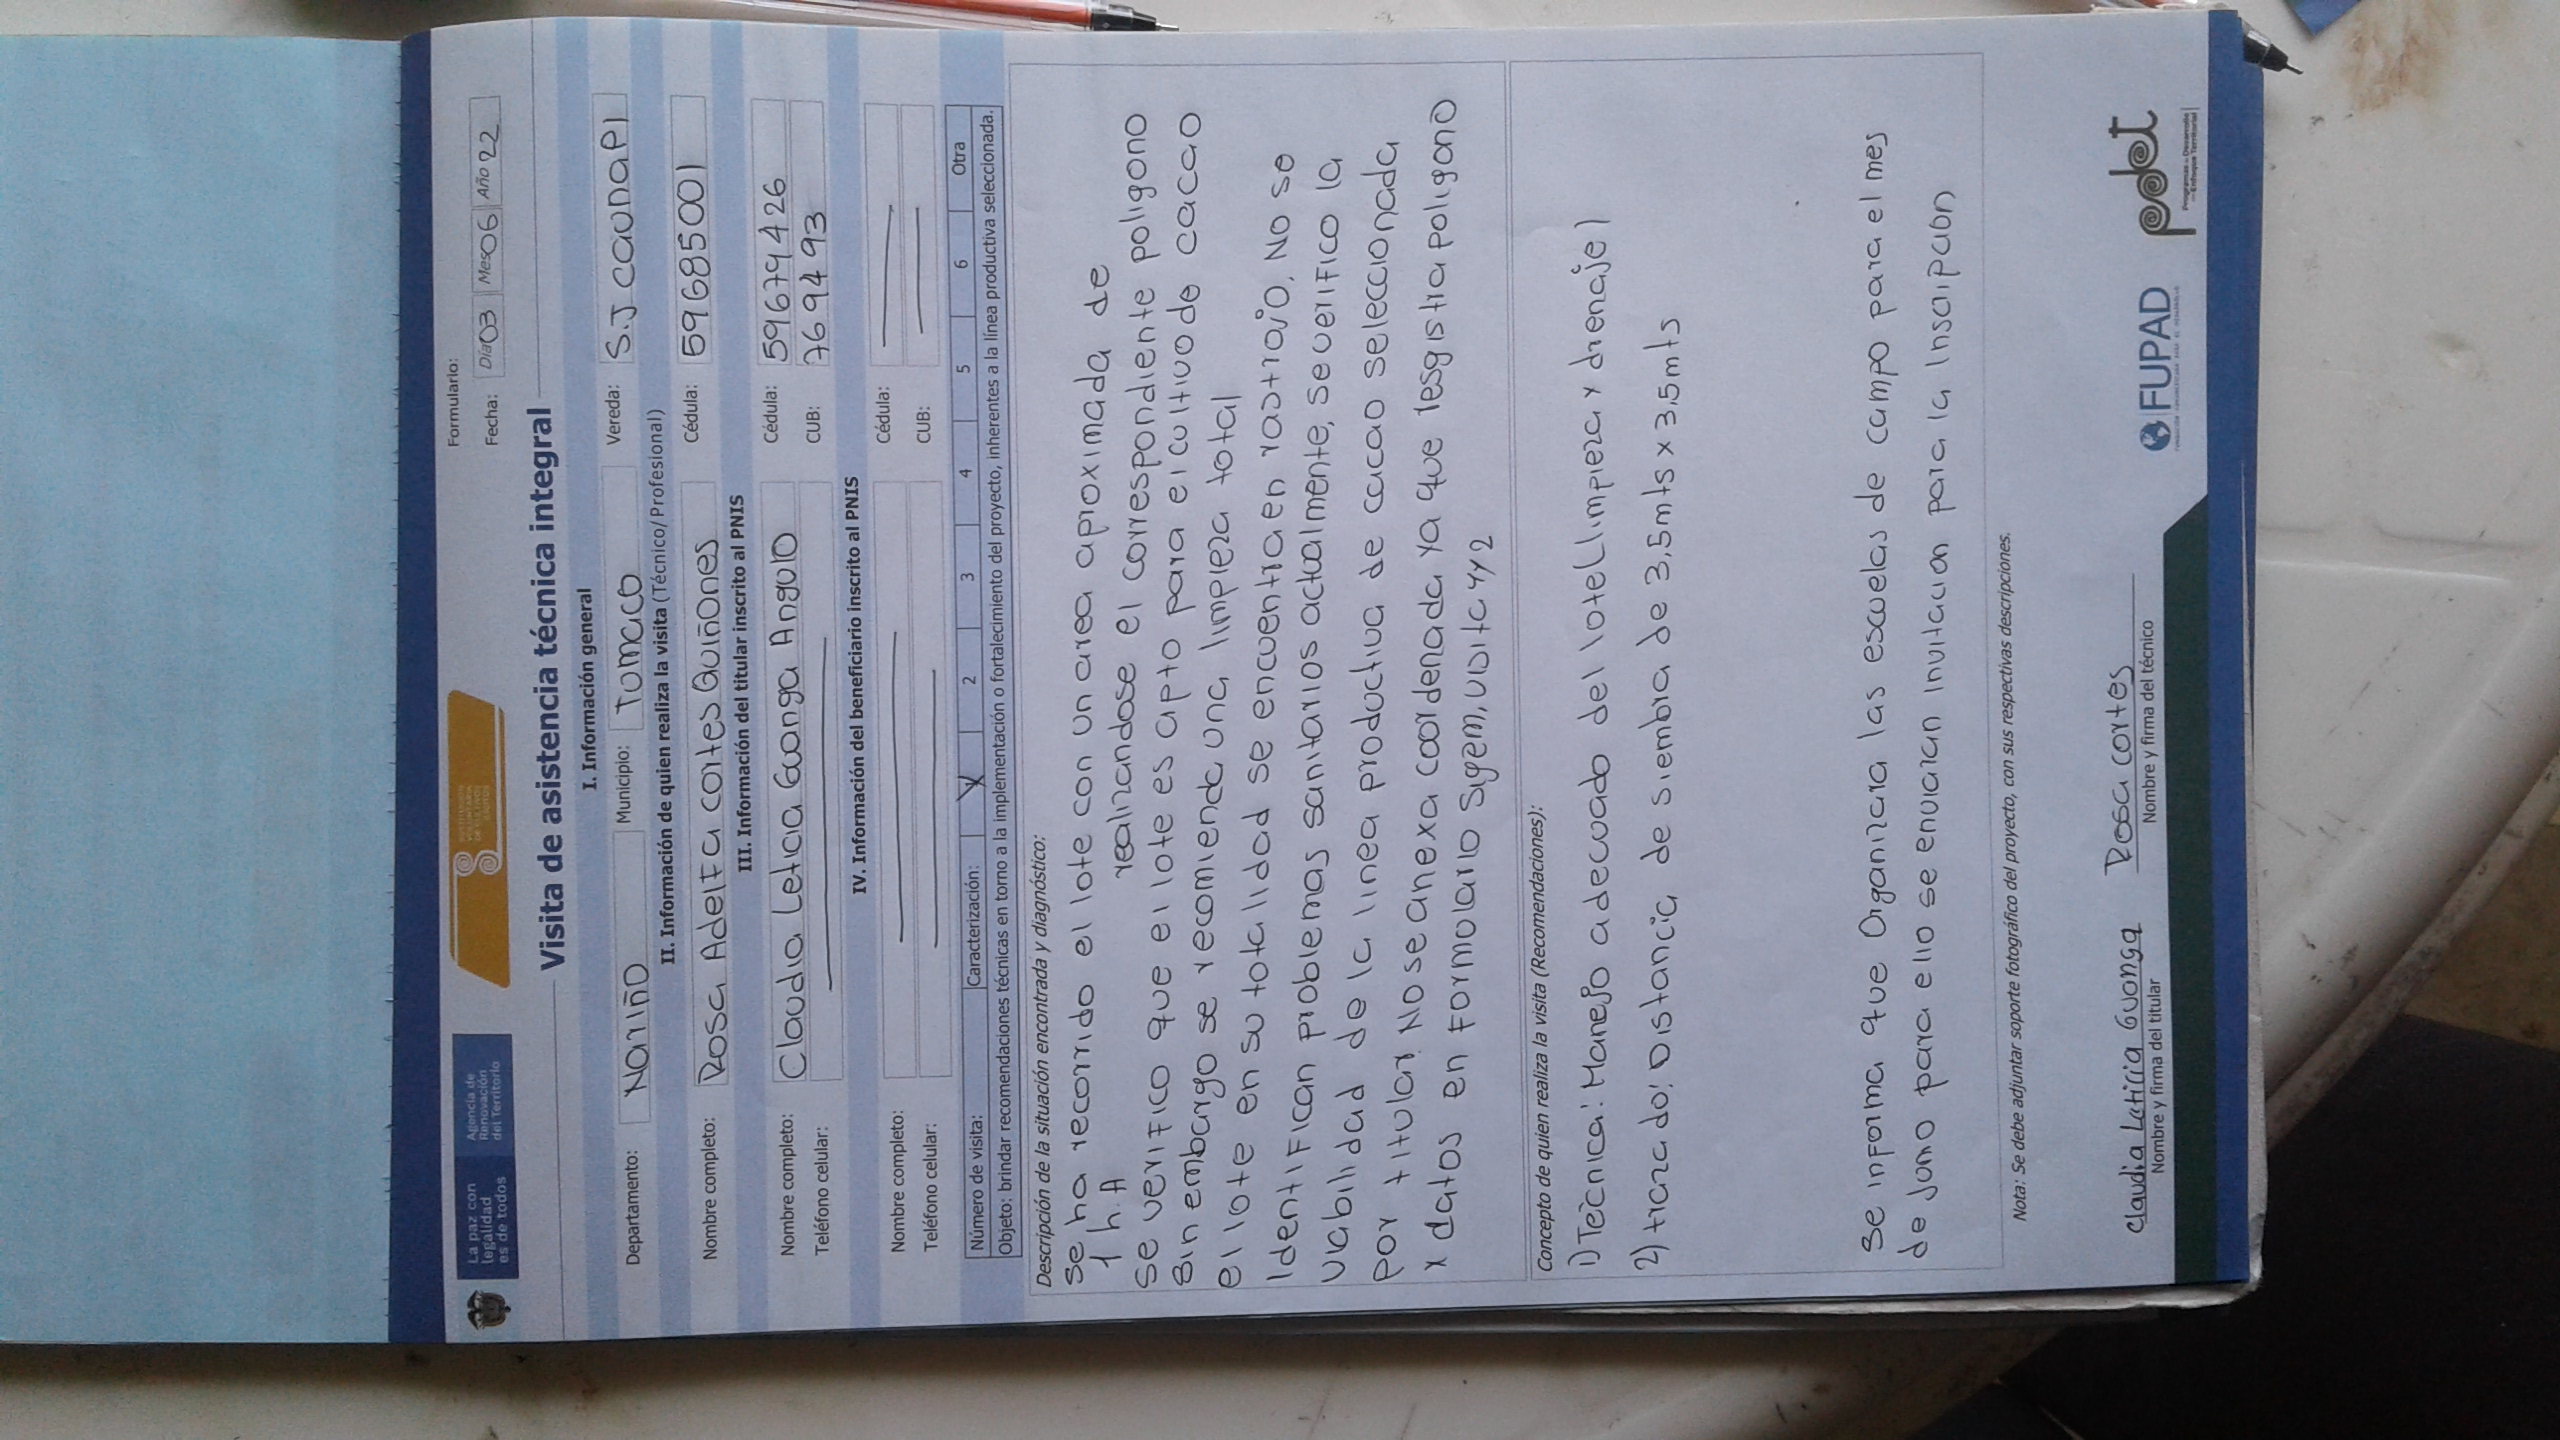 La paz con
legalidad
es de todos
Agencia de
Renovación
del Territorio
SUSTITUCIÓN
VOLUNTARIA
DE CULTIVOS
ILÍCITOS
Formulario:
Fecha: Día 03 Mes 06 Año 22
Visita de asistencia técnica integral
I. Información general
Departamento: Nariño Municipio: Tumaco Vereda: S.J caunapi
II. Información de quien realiza la visita (Técnico/Profesional)
Nombre completo: Rosa Adelfa cortes Quiñones Cédula: 59685001
III. Información del titular inscrito al PNIS
Nombre completo: Claudia Leticia Guanga Angulo Cédula: 59679426
Teléfono celular: CUB: 769493
IV. Información del beneficiario inscrito al PNIS
Nombre completo: Cédula:
Teléfono celular: CUB:
Número de visita: Caracterización: X 2 3 4 5 6 Otra
Objeto: brindar recomendaciones técnicas en torno a la implementación o fortalecimiento del proyecto, inherentes a la línea productiva seleccionada.
Descripción de la situación encontrada y diagnóstico:
se ha recorrido el lote con un area aproximada de
1 h.A realizandose el correspondiente poligono
se verifico que el lote es apto para el cultivo de cacao
sin embargo se recomienda una limpieza total
el lote en su totalidad se encuentra en rastrojo. No se
identifican problemas sanitarios actualmente, se verifico la
viabilidad de la linea productiva de cacao seleccionada
por titular. No se anexa coordenada ya que resgistra poligono
x datos en formulario sygem, visita 1 y 2
Concepto de quien realiza la visita (Recomendaciones):
1) Tecnica: Manejo adecuado del lote (limpieza y drenaje)
2) trazado: Distancia de siembra de 3,5mts x 3,5mts
Se informa que organizara las escuelas de campo para el mes
de junio para ello se enviaran invitacion para la inscripcion
Nota: Se debe adjuntar soporte fotográfico del proyecto, con sus respectivas descripciones.
Claudia Leticia Guanga Rosa cortes
Nombre y firma del titular Nombre y firma del técnico
FUPAD
pdet
Programas de Desarrollo
con Enfoque Territorial